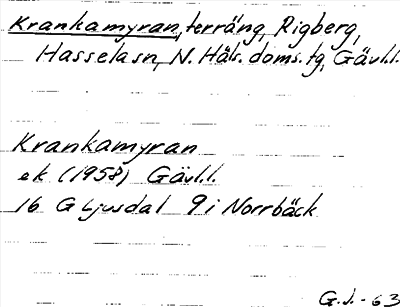 Krankamyran, terräng, Rigberg,
Hassela sn, N. Häls. doms. tg, Gävl.l.
Krankamyran
ek (1958) Gävl.l.
16 G Ljusdal 9 i Norrbäck
G.J. - 63